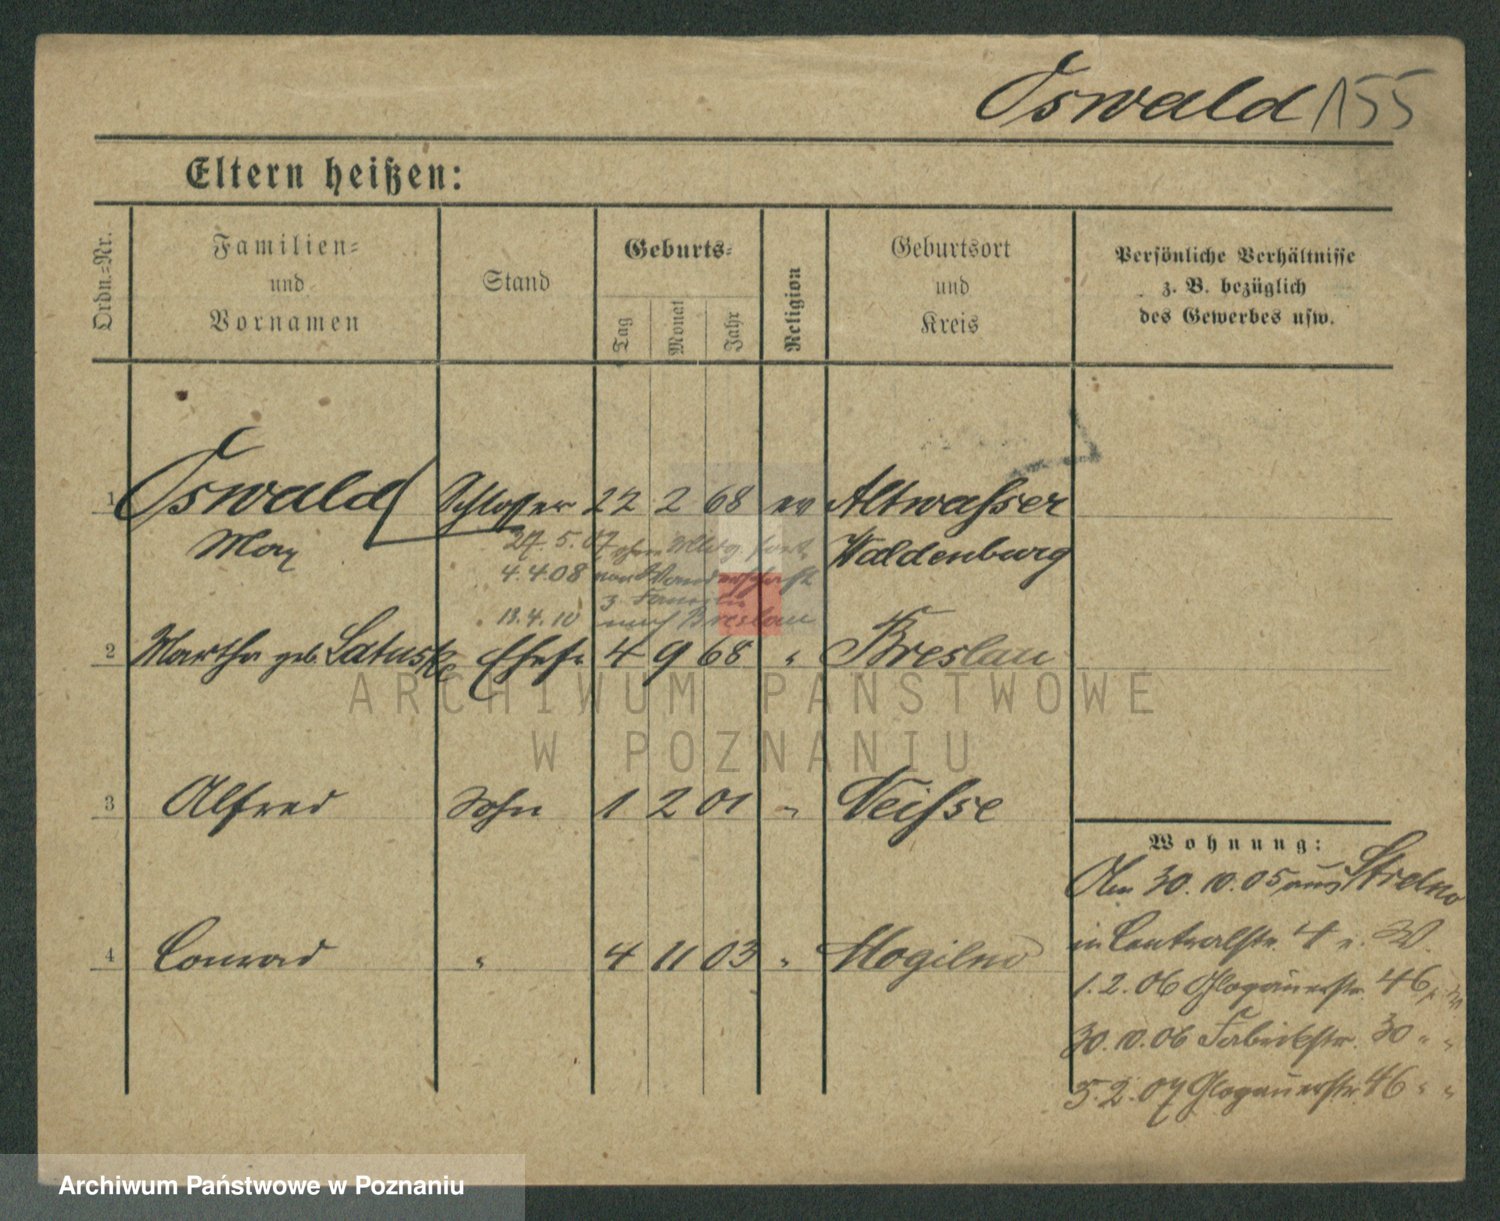 Oswald 155
Eltern heißen:
Ordn.=Nr.
Familien=
und
Vornamen
Stand
Geburts=
Tag
Monat
Jahr
Religion
Geburtsort
und
Kreis
Persönliche Verhältnisse
z. B. bezüglich
des Gewerbes usw.
1 Oswald Schlosser 22 2 68 ev Altwasser
Max Waldenburg
27. 5. 07 ohne fort
4. 4. 08 von Wanderschaft
z. Familie
13. 4. 10 nach Breslau
2 Martha geb. Latuske Ehefr. 4 9 68 " Breslau
ARCHIWUM PAŃSTWOWE
W POZNANIU
3 Alfred Sohn 1 2 01 " Neisse
4 Conrad " 4 11 03 " Mogilno
Wohnung:
Am 30. 10. 05 aus Strelno
in Centralstr. 4 b. W.
1. 2. 06 Glogauerstr. 46
30. 10. 06 Fabrikstr. 30 " "
5. 2. 07 Glogauerstr. 46 " "
Archiwum Państwowe w Poznaniu